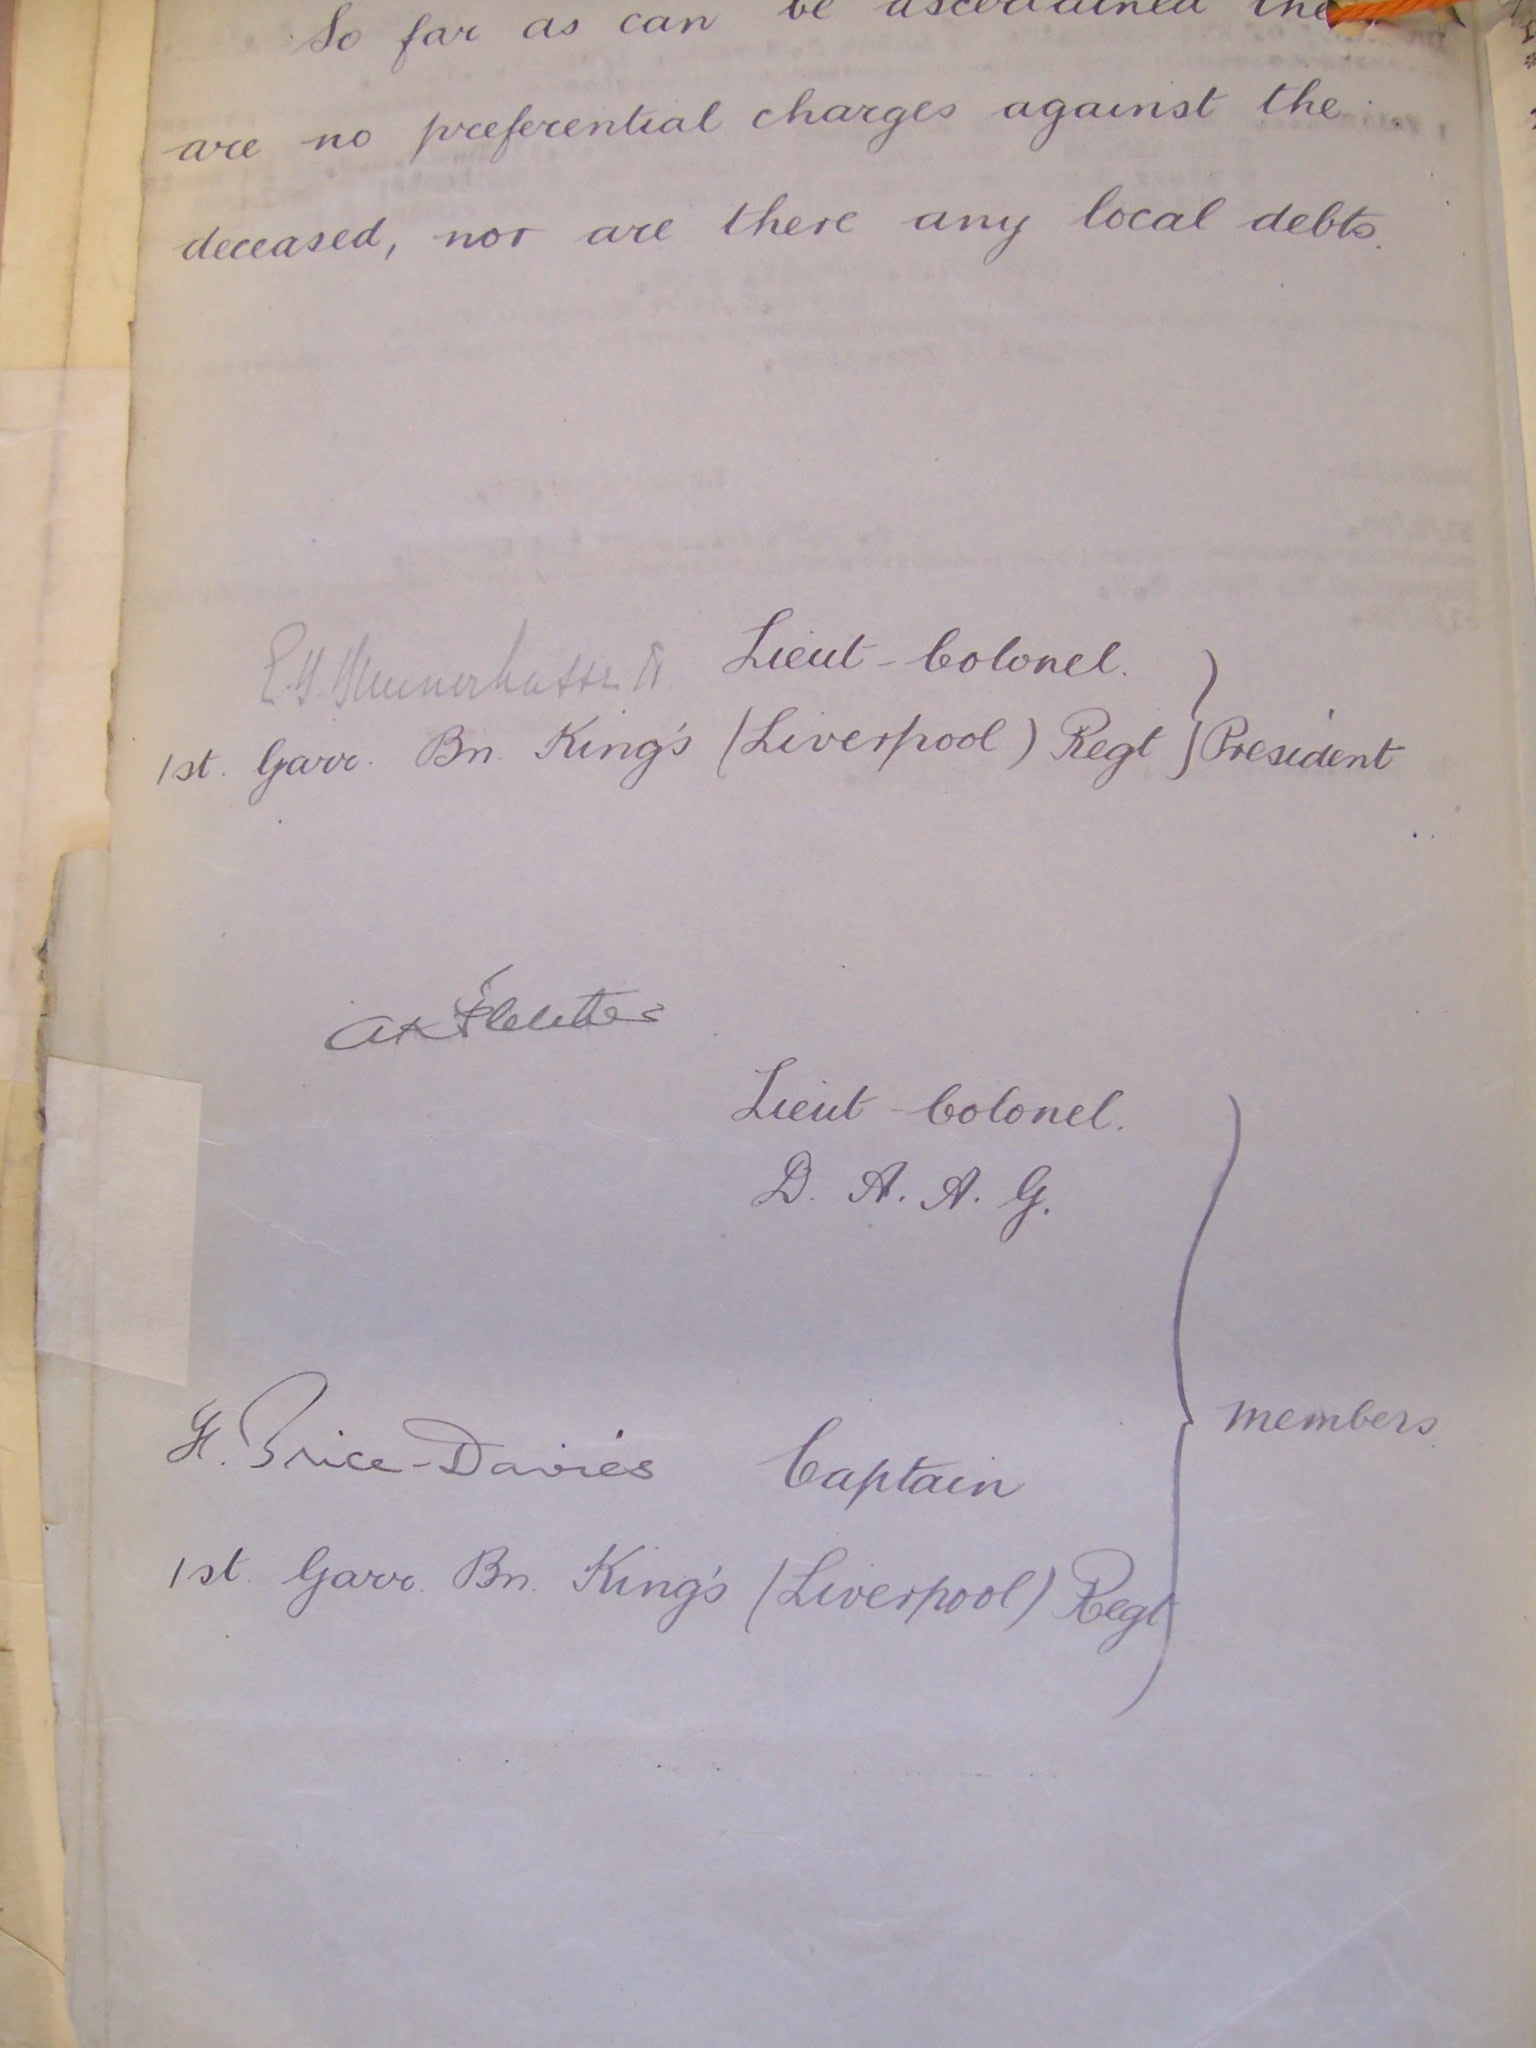 So far as can be ascertained the
are no preferential charges against the
deceased, nor are there any local debts.
Lieut-Colonel.
1st. Garr. Bn. King's (Liverpool) Regt } President
Lieut-Colonel.
D. A. A. G.
Price-Davies Captain
members.
1st. Garr. Bn. King's (Liverpool) Regt